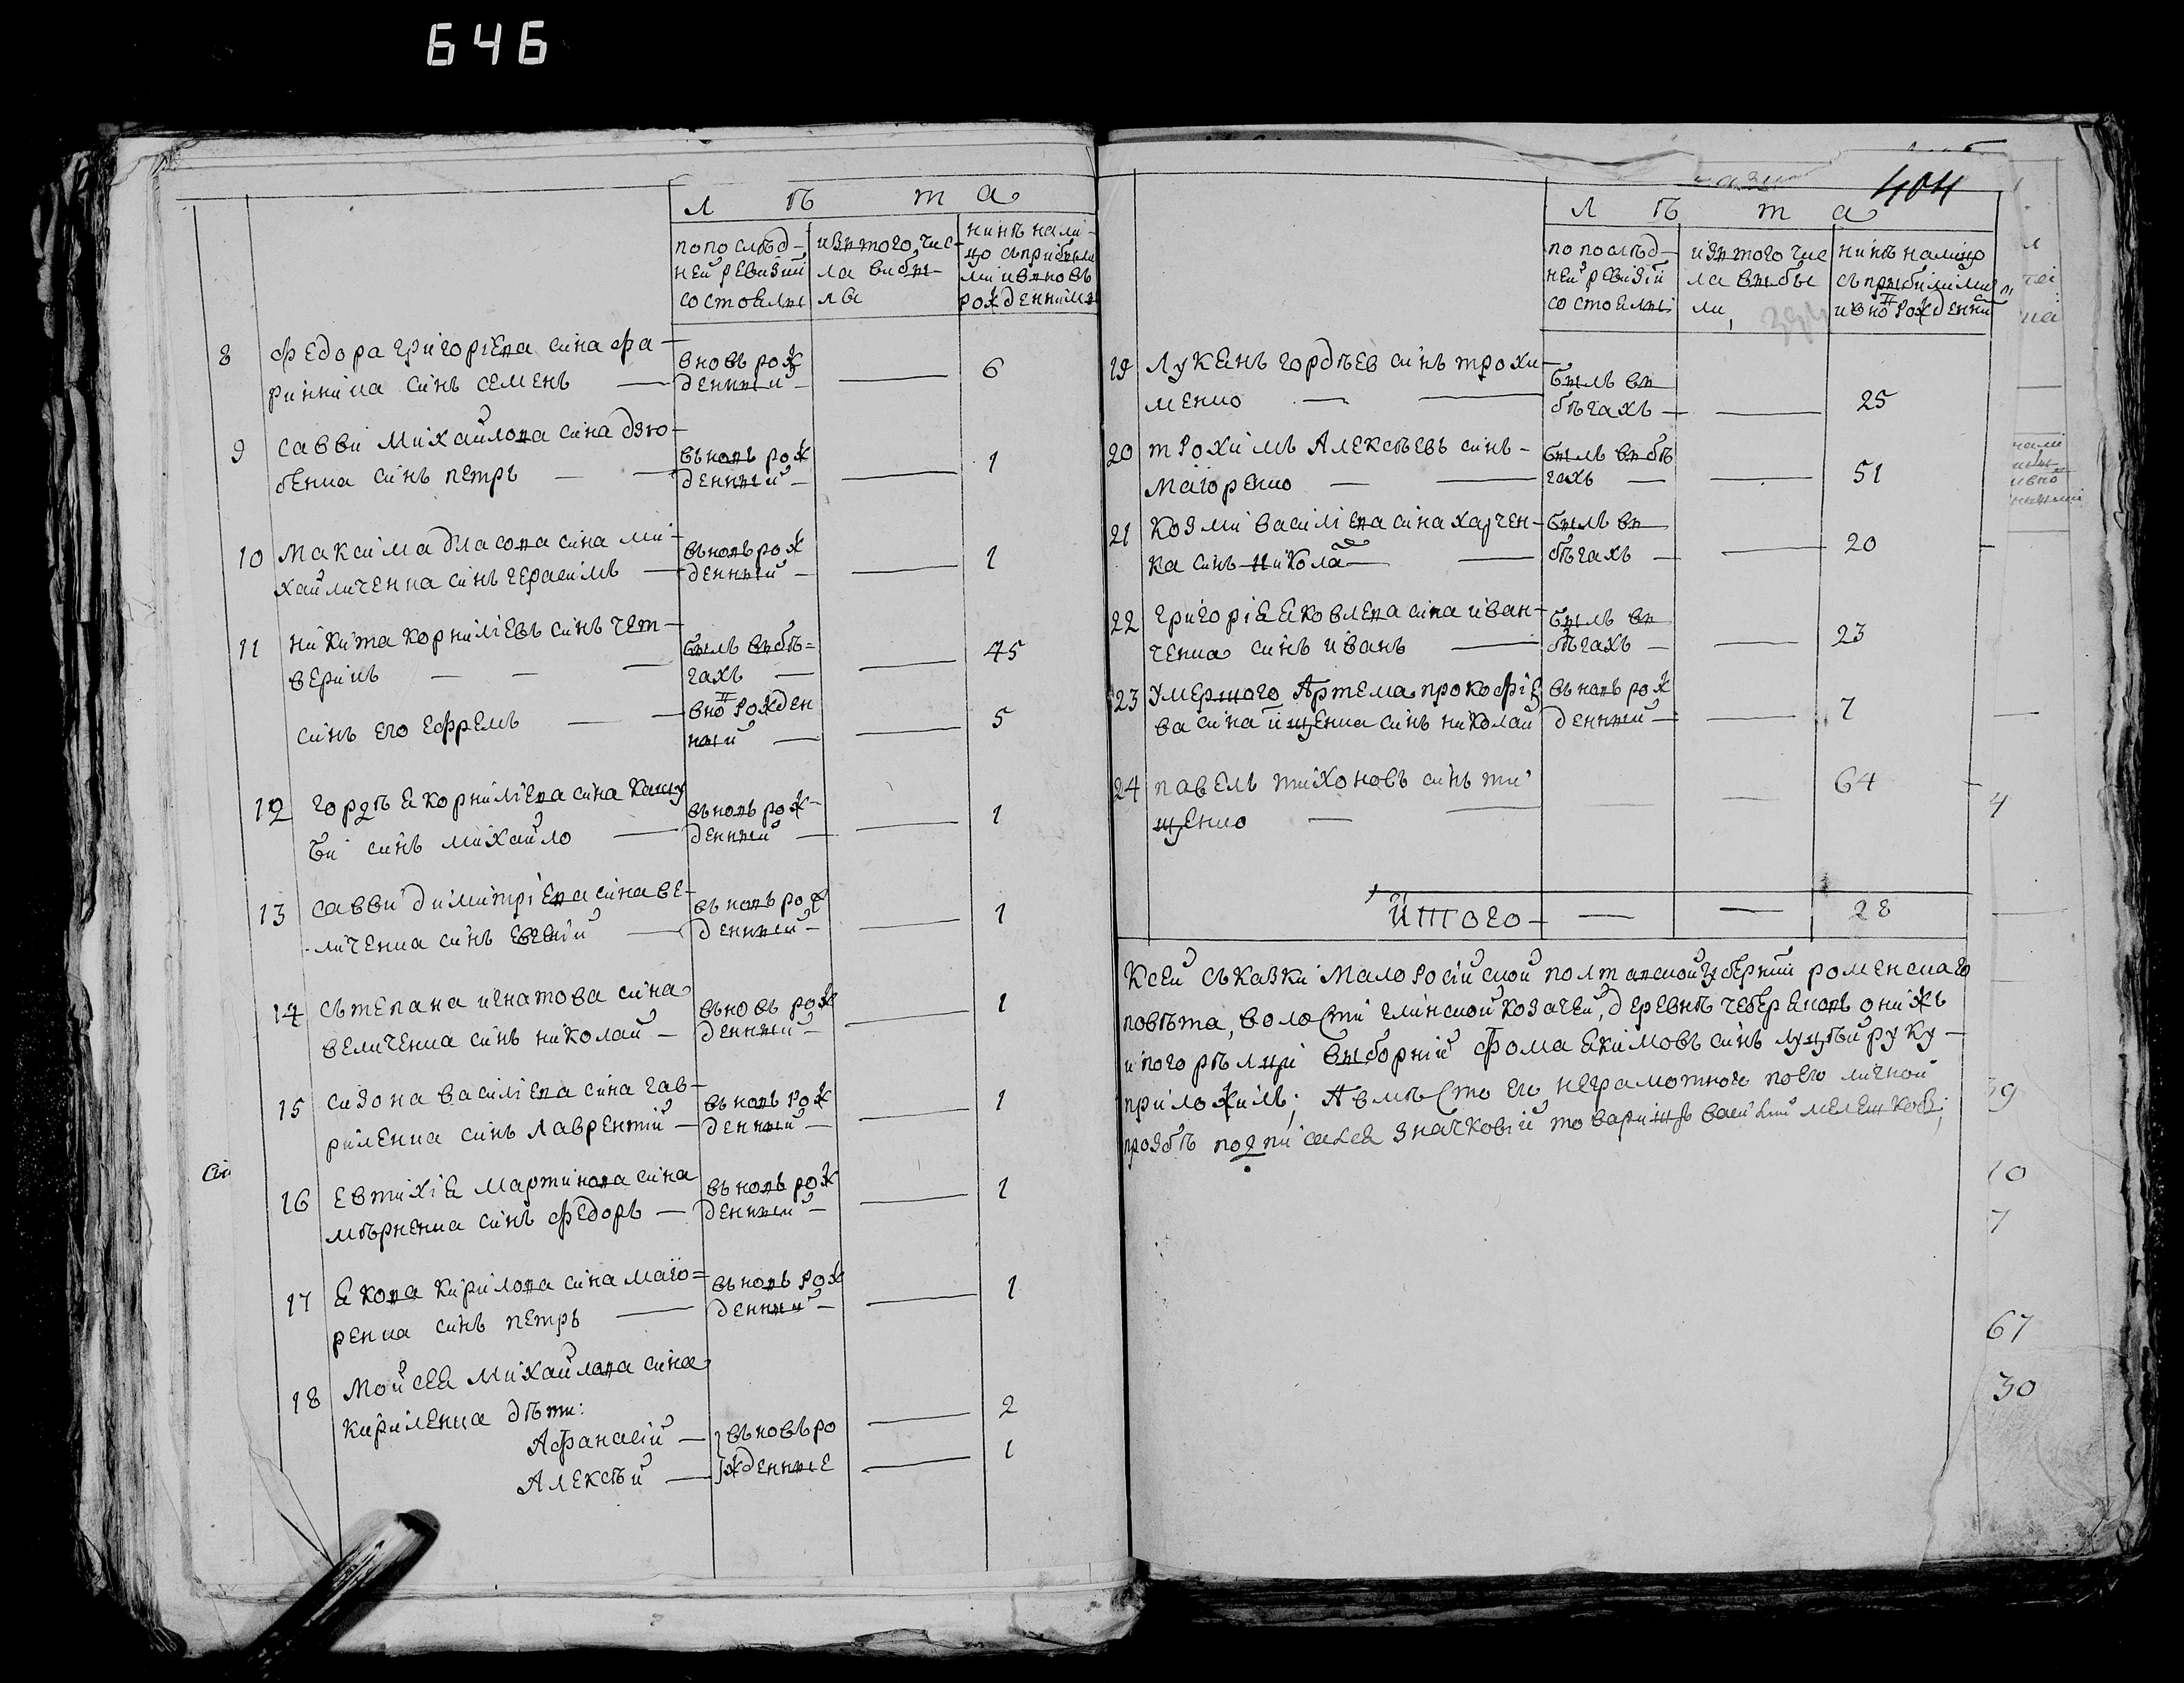 646
Л ѣ т а
по послѣд-
ней ревизий
состоялы
изъ того чис-
ла вибы-
лы
нинѣ нали-
цо съприбыли
ми ивновъ
рожденними
8 Федора григоріева сина фа-
ринника синъ семенъ —
вновъ рож
денный —
— 6
9 савви михайлова сина дзю-
бенка синъ петръ —
вьновъ рож
денный —
— 1
10 максима власова сина ми-
хайличенка синъ герасимъ —
вьновъ рож
денный —
— 1
11 никита корниліевъ синъ чет-
верикъ — — —
былъ въбѣ=
гахъ —
— 45
синъ его ефремъ — —
вново рожден
ный —
— 5
12 гордѣя корниліева сина кашу
би синъ михайло —
вьновъ рож-
денный —
— 1
13 савви димитріева сина ве-
личенка синъ евсевій —
вьновъ рож
денный —
— 1
14 сьтепана игнатова сина
величенка синъ николай —
вьновъ рож
денный —
— 1
15 сизона василіева сина гав-
риленка синъ лаврентій —
вьновъ рож
денный —
— 1
16 евтихія мартинова сина
мѣрненка синъ федоръ —
вьновъ рож
денный —
— 1
17 якова кирилова сина маіо=
ренка синъ петръ —
вьновъ рож
денный —
— 1
18 мойсея михайлова сина
кириленка дѣти:
Афанасій —
вьновъ ро
— 2
Алексѣй —
жденные
— 1
404
Л ѣ т а
по послѣд-
ней ревізій
состоялы
изъ того чис
ла выбы
ли
нинѣ налицо
съприбилими
ивново рожденни
19 Лукянъ гордѣев синъ трохи-
менко — —
былъ въ
бѣгахъ —
— 25
20 трохимъ Алексѣевъ синъ -
маіоренко — —
былъ въ бѣ
гахъ —
— 51
21 козми василіева сина харчен-
ка синъ николай —
былъ въ
бѣгахъ —
— 20
22 григорія яковлева сина иван-
ченка синъ иванъ —
былъ въ
бѣгахъ —
— 23
23 умершого Артема прокофіе
ва сина ищенка синъ николай
вьновъ рож
денный —
— 7
24 павелъ тихоновъ синъ ти
щенко — —
— — 64
Итого — — — 28
Ксей съказки малоросійской полтавской губерній роменскаго
повѣта, волости глинской козачей, деревнѣ чеберяковъ онижъ
и погорѣлци выборній фома якимовъ синъ луцѣй руку-
приложилъ; А вмѣсто его неграмотного поего личной
прозбѣ подписался значковій товаришъ василій мелешковъ;
4
10
7
67
30